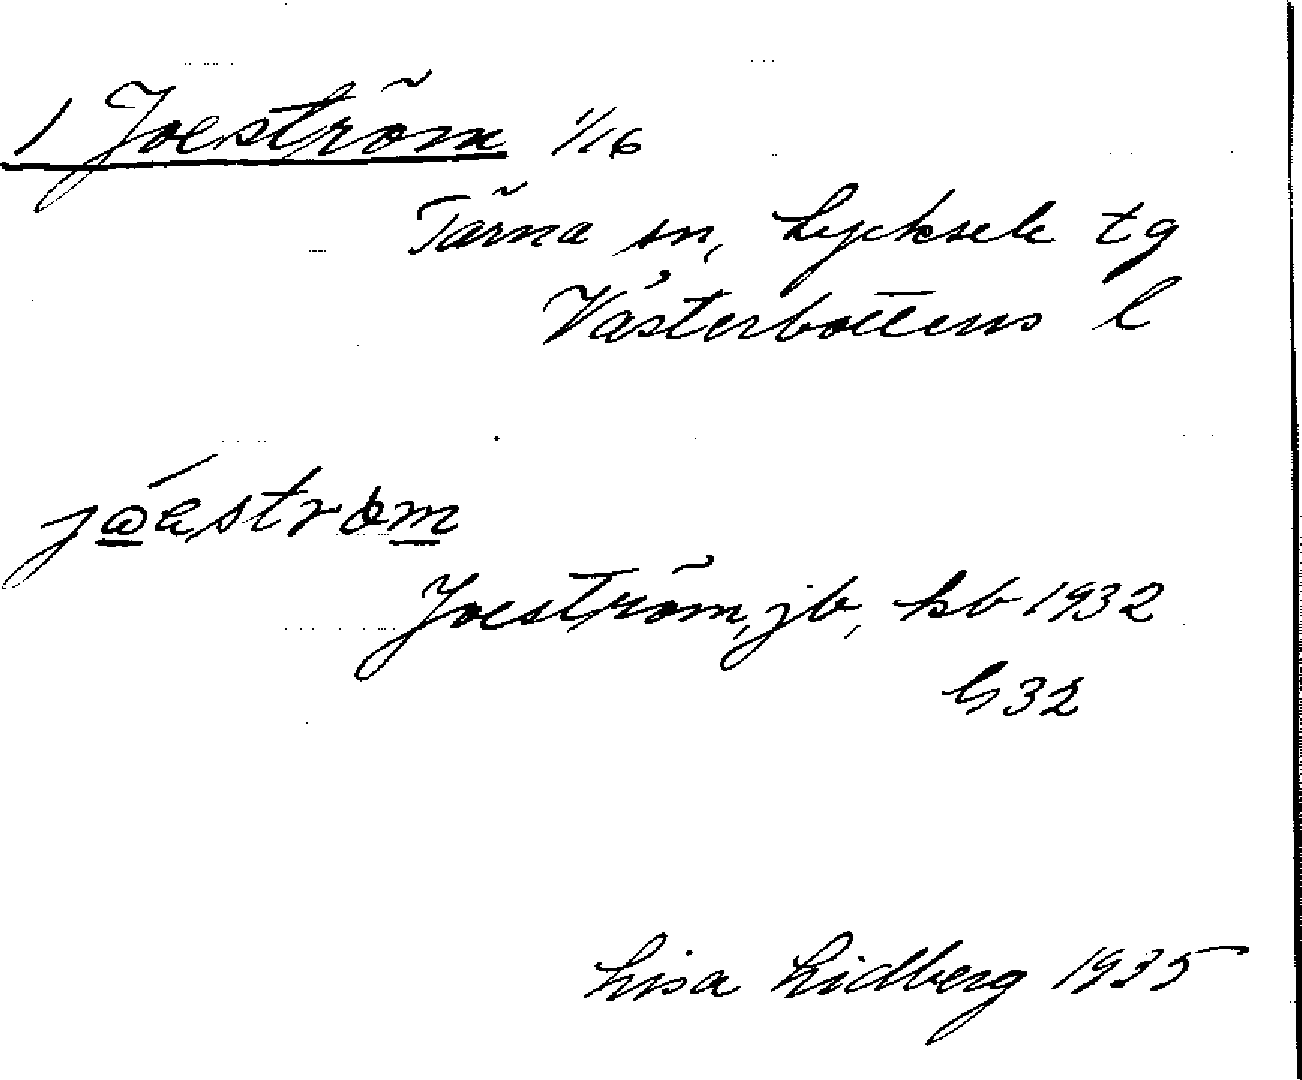 1 Joeström 1/16
Tärna sn, Lycksele tg
Västerbottens l
Joeström, jb, kb 1932
G32
Lisa Lidberg 1935